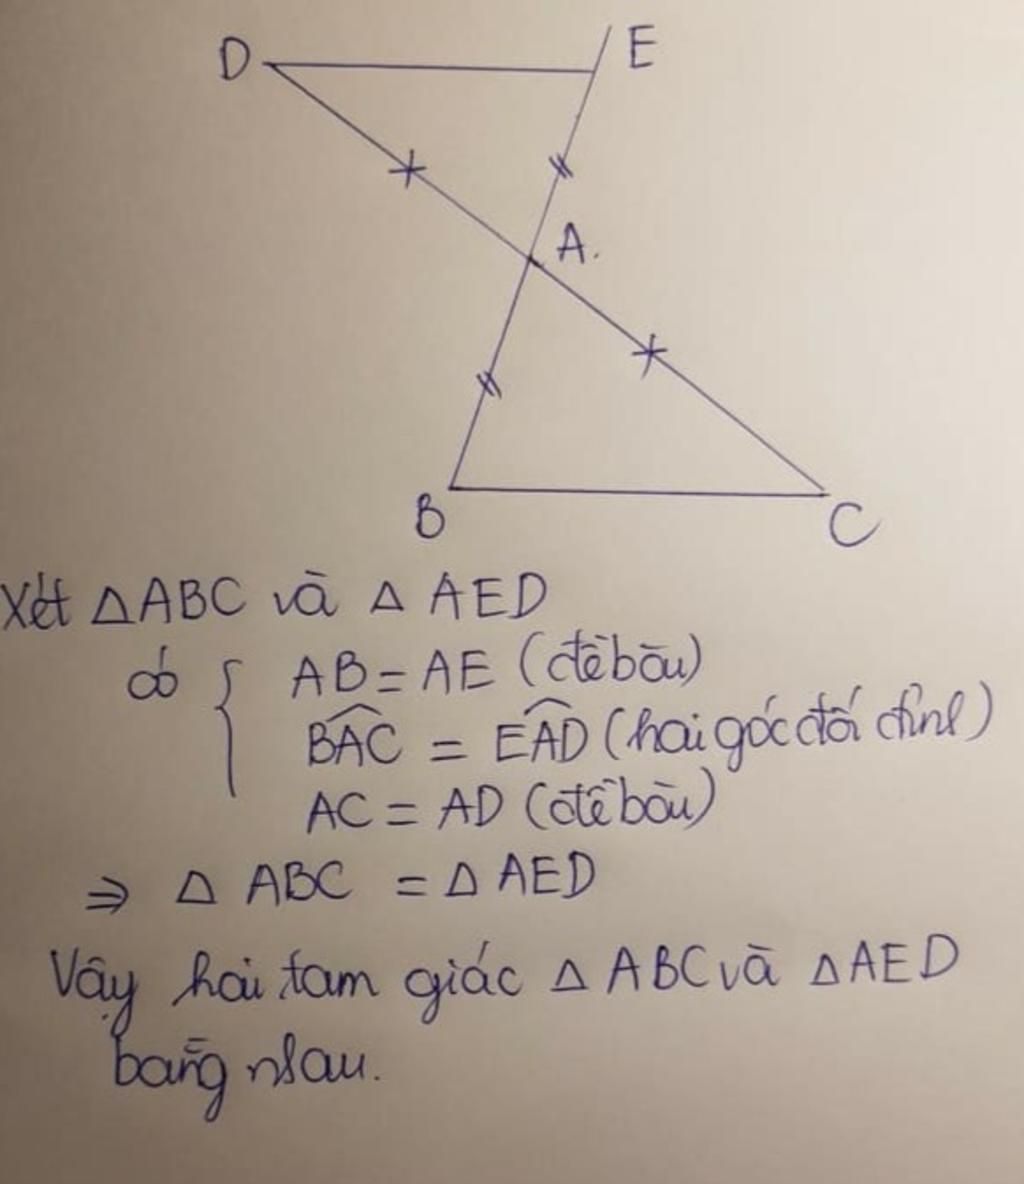 D
E
A.
B
C
Xét △ABC và △ AED
có { AB = AE (đề bài)
BAC = EAD (hai góc đối đỉnh)
AC = AD (đề bài)
⇒ △ ABC = △ AED
Vậy hai tam giác △ ABC và △AED
bằng nhau.